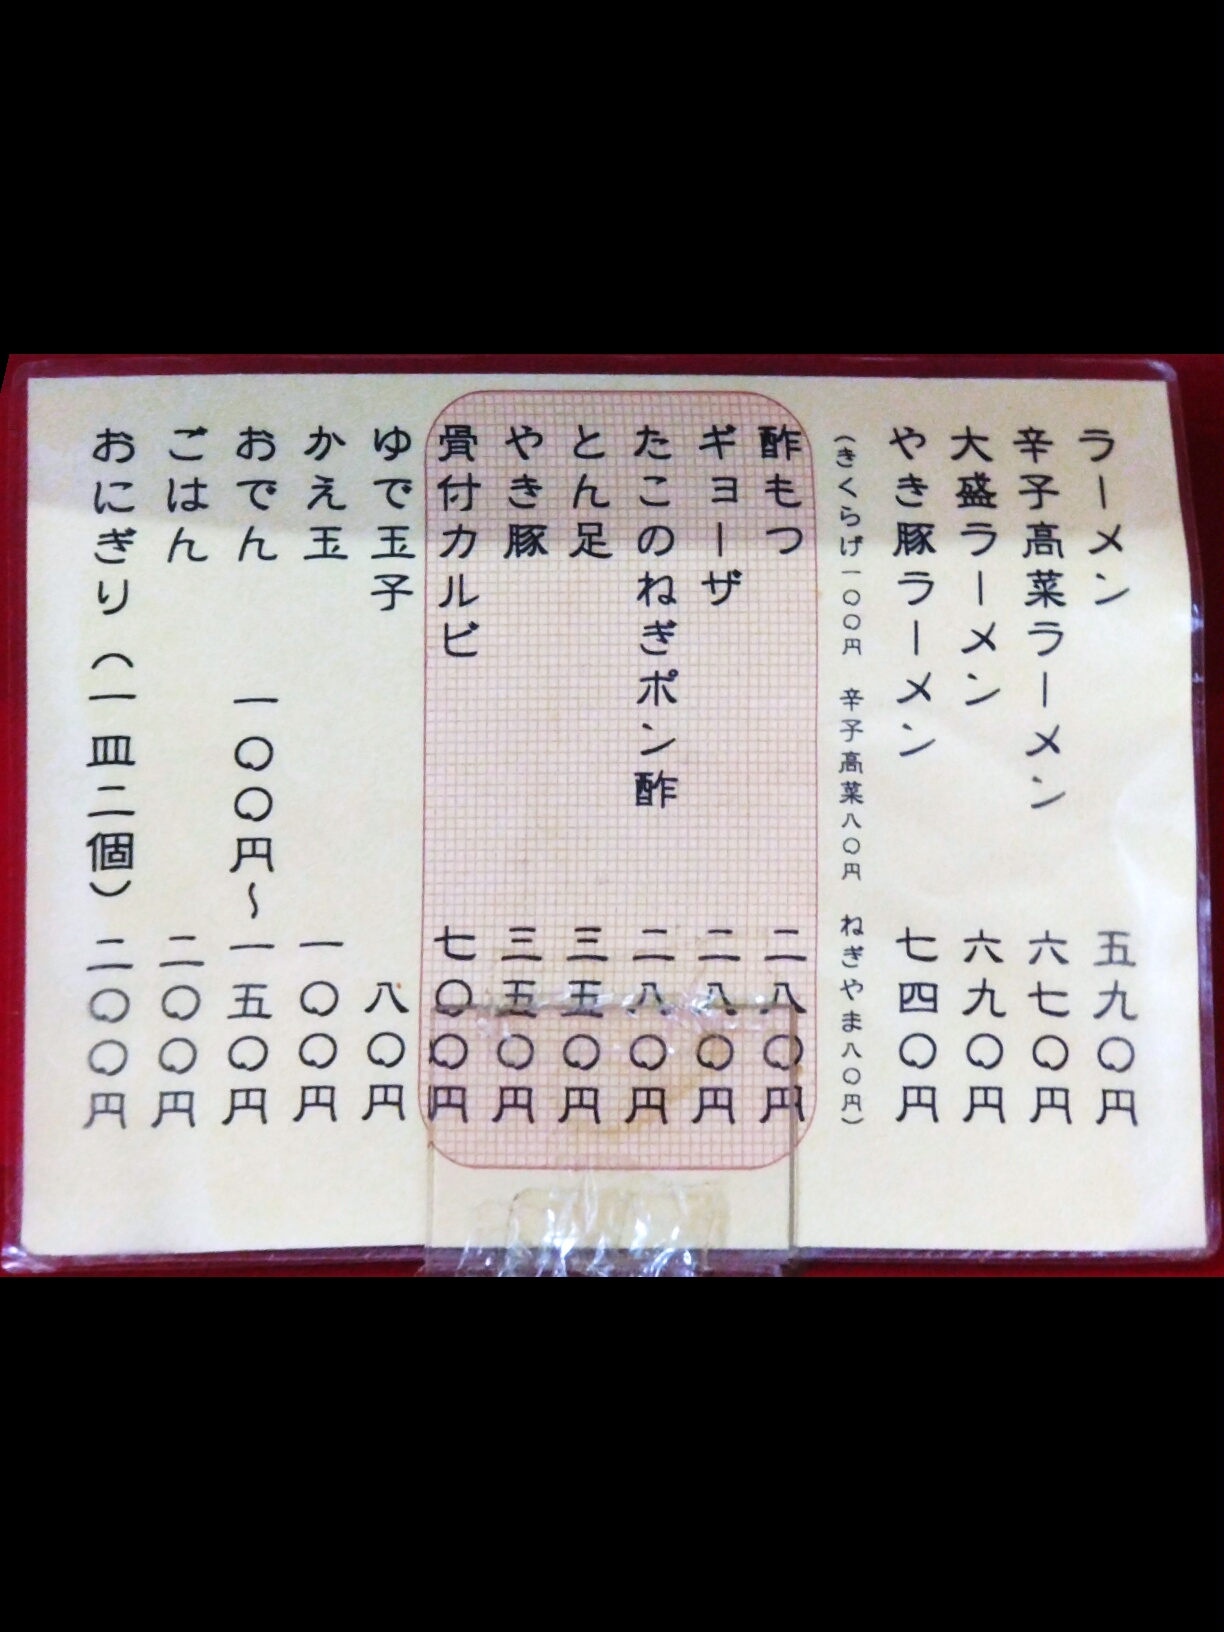 ラーメン 五九〇円
辛子高菜ラーメン 六七〇円
大盛ラーメン 六九〇円
やき豚ラーメン 七四〇円
(きくらげ一〇〇円 辛子高菜八〇円 ねぎやま八〇円)
酢もつ 二八〇円
ギョーザ 二八〇円
たこのねぎポン酢 二八〇円
とん足 三五〇円
やき豚 三五〇円
骨付カルビ 七〇〇円
ゆで玉子 八〇円
かえ玉 一〇〇円
おでん 一〇〇円~一五〇円
ごはん 二〇〇円
おにぎり(一皿二個) 二〇〇円